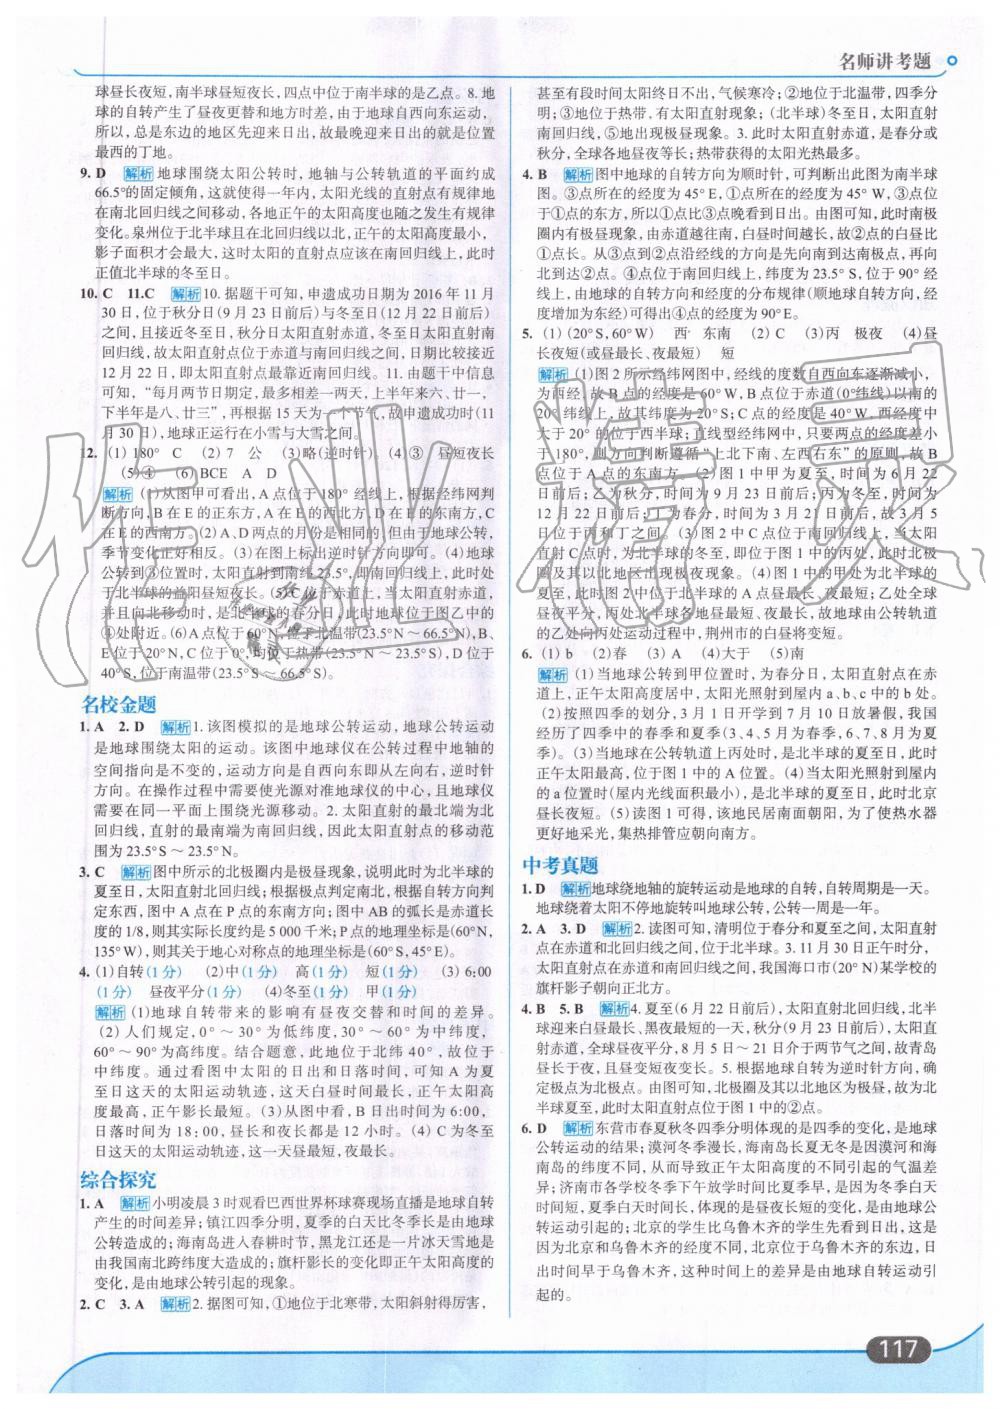 名师讲考题
球昼长夜短,南半球昼短夜长,四点中位于南半球的是乙点。8. 地
球的自转产生了昼夜更替和地方时差,由于地球自西向东运动,
所以,总是东边的地区先迎来日出,故最晚迎来日出的就是位置
最西的丁地。
9. D 解析 地球围绕太阳公转时,地轴与公转轨道的平面约成
66.5°的固定倾角,这就使得一年内,太阳光线的直射点有规律地
在南北回归线之间移动,各地正午的太阳高度也随之发生有规律
变化。泉州位于北半球且在北回归线以北,正午的太阳高度最小,
影子面积才会最大,这时太阳的直射点应该在南回归线上,此时
正值北半球的冬至日。
10. C 11.C 解析 10. 据题干可知,申遗成功日期为 2016 年 11 月
30 日,位于秋分日(9 月 23 日前后)与冬至日(12 月 22 日前后)
之间,且接近冬至日,秋分日太阳直射赤道,冬至日太阳直射南
回归线,故太阳直射点位于赤道与南回归线之间,日期比较接近
12 月 22 日,即直射点最靠近南回归线。11. 由题干中信息
可知,“每月两节日期定,最多相差一两天,上半年来六、廿一,
下半年是八、廿三”,再根据 15 天为一个节气,故申遗成功时(11
月 30 日),地球正运行在小雪与大雪之间。
12. (1) 180° C (2) 7 公 (3)略(逆时针) (4) ③ 昼短夜长
(5) ④ (6) BCE AD
解析 (1)从图甲可看出,A 点位于180° 经线上,根据经纬网判
断方向,B 在 E 的正东方,A 在 E 的西北方,D 在 E 的东南方,C
在 E 的西南方。(2)A、D 两点的月份是相同的,但由于地球公转,
季节变化正好相反。(3)在图上标出逆时针方向即可。(4)地球
公转到③位置时,太阳直射到南纬 23.5°,即南回归线上,此时处
于北半球的益阳昼短夜长。(5)C 点位于赤道上,当太阳直射赤道,
并且向北移动时,是北半球的春分日,此时地球位于图乙中的
④处附近。(6)A 点位于 60°N,位于北温带(23.5°N ～ 66.5°N),B、
E 位于 20°N,C 位于 0°,均位于热带(23.5°N ～ 23.5°S),D 位于
40°S,位于南温带(23.5°S ～ 66.5°S)。
名校金题
1. A 2. D 解析 1. 该图模拟的是地球公转运动,地球公转运动
是地球围绕太阳的运动。该图中地球仪在公转过程中地轴的
空间指向是不变的,运动方向是自西向东即从左向右,逆时针
方向。在操作过程中需要使光源对准地球仪的中心,且地球仪
需要在同一平面上围绕光源移动。2. 太阳直射的最北端为北
回归线,直射的最南端为南回归线,因此太阳直射点的移动范
围为 23.5°S ～ 23.5°N。
3. C 解析 图中所示的北极圈内是极昼现象,说明此时为北半球的
夏至日,太阳直射北回归线;根据极点判定南北,根据自转方向判
定东西,图中 A 点在 P 点的东南方向;图中 AB 的弧长是赤道长度
的 1/8,则其实际长度约是 5 000 千米;P 点的地理坐标是(60°N,
135°W),则其关于地心对称点的地理坐标是(60°S,45°E)。
4. (1)自转(1 分) (2)中(1 分) 高(1 分) 短(1 分) (3) 6:00
(1 分) 昼夜平分(1 分) (4)冬至(1 分) 甲(1 分)
解析 (1)自转带来的影响有昼夜交替和时间的差异。
(2) 人们规定,0° ～ 30° 为低纬度,30° ～ 60° 为中纬度,
60° ～ 90° 为高纬度。结合题意,此地位于北纬 40°,故位于
中纬度。通过看图中太阳的日出和日落时间,可知 A 为夏
至日这天的太阳运动轨迹,这天白昼时间最长,正午太阳高
度最高,正午影长最短。(3)从图中看,B 日出时间为 6:00,
日落时间为 18:00,昼长和夜长都是 12 小时。(4) C 为冬至
日这天的太阳运动轨迹,这一天昼最短,夜最长。
综合探究
1. A 解析 小明凌晨 3 时观看巴西世界杯球赛现场直播是地球自转
产生的时间差异;镇江四季分明,夏季的白天比冬季长是由地球
公转造成的;海南岛进入春耕时节,黑龙江还是一片冰天雪地是
由我国南北跨纬度大造成的;旗杆影长的变化即正午太阳高度的
变化,是由地球公转引起的现象。
2. C 3. A 解析 2. 据图可知,①地位于北寒带,太阳斜射得厉害,
甚至有段时间太阳终日不出,气候寒冷;②地位于北温带,四季分
明;③地位于热带,有太阳直射现象;(北半球)冬至日,太阳直射
南回归线,⑤地出现极昼现象。3. 此时太阳直射赤道,是春分或
秋分,全球各地昼夜等长;热带获得的太阳光热最多。
4. B 解析 图中地球的自转方向为顺时针,可判断出此图为南半球
图。③点所在的经度为 45° E,①点所在的经度为 45° W,③点位
于①点的东方,所以①点比③点晚看到日出。由图可知,此时南极
圈内有极昼现象,由赤道越往南,白昼时间越长,故②点的白昼比
①点长。从③点到②点沿经线的方向是先向南到达南极点,再向
北到达②点。④点位于南回归线上,纬度为 23.5° S,位于 90° 经
线上,由地球的自转方向和经度的分布规律(顺地球自转方向,经
度增加为东经)可得出④点的经度为 90°E。
5. (1) (20°S,60°W) 西 东南 (2) C (3)丙 极夜 (4)昼
长夜短(或昼最长、夜最短) 短
解析 (1)图 2 所示经纬网图中,经线的度数自西向东逐渐减小,
为西经,故 B 点的经度是 60°W,B 点位于赤道(0°纬线)以南的
20°纬线上,故其纬度为 20°S;C 点的经度是 40°W,西经度中
大于 20° 的位于西半球;直线型经纬网中,只要两点的经度差小
于 180°,则方向判断遵循“上北下南、左西右东”的原则,故 B
点位于 A 点的东南方。(2)图 1 中甲为夏至,时间为 6 月 22
日前后;乙为秋分,时间为 9 月 23 日前后;丙为冬至,时间为
12 月 22 日前后;丁为春分,时间为 3 月 21 日前后,故 3 月 5
日位于丙和丁之间。(3)图 2 中 C 点位于南回归线上,当太阳
直射 C 点时,为北半球的冬至日,位于图 1 中的丙处,此时北极
圈及其以北地区出现极夜现象。(4)图 1 中的甲处为北半球的
夏至,此时图 2 中位于北半球的 A 点昼最长、夜最短;乙处全球
昼夜平分,丙处为北半球各地昼最短、夜最长,故地球由公转轨道
的乙处向丙处运动过程中,荆州市的白昼将变短。
6. (1) b (2)春 (3) A (4)大于 (5)南
解析 (1)当地球公转到甲位置时,为春分日,太阳直射点在赤
道上,正午太阳高度居中,太阳光照射到屋内 a、b、c 中的 b 处。
(2)按照四季的划分,3 月 1 日开学到 7 月 10 日放暑假,我国
经历了四季中的春季和夏季(3、4、5 月为春季,6、7、8 月为夏
季)。(3)当地球在公转轨道上丙处时,是北半球的夏至日,此时
正午太阳最高,位于图 1 中的 A 位置。(4)当太阳光照射到屋内
的 a 位置时(屋内光线面积最小),是北半球的夏至日,此时北京
昼长夜短。(5)读图 1 可得,该地民居南面朝阳,为了使热水器
更好地采光,集热排管应朝向南方。
中考真题
1. D 解析 地球绕地轴的旋转运动是地球的自转,自转周期是一天。
地球绕着太阳不停地旋转叫地球公转,公转一周是一年。
2. A 3. D 解析 2. 读图可知,清明位于春分和夏至之间,太阳直射
点在赤道和北回归线之间,位于北半球。3. 11 月 30 日正午时分,
太阳直射点在赤道和南回归线之间,我国海口市(20° N)某学校的
旗杆影子朝向正北方。
4. B 5. B 解析 4. 夏至(6 月 22 日前后),太阳直射北回归线,北半
球迎来白昼最长、黑夜最短的一天,秋分(9 月 23 日前后),太阳直
射赤道,全球昼夜平分,8 月 5 日～ 21 日介于两节气之间,故青岛
昼长于夜,且昼变短夜变长。5. 根据地球自转为逆时针方向,确
定极点为北极点。由图可知,北极圈及其以北地区为极昼,故为北
半球夏至,此时太阳直射点位于图 1 中的②点。
6. D 解析 东营市春夏秋冬四季分明体现的是四季的变化,是地球
公转运动的结果;漠河冬季漫长,海南岛长夏无冬是因漠河和海
南岛的纬度不同,从而导致正午太阳高度的不同引起的气温差
异;济南市各学校冬季下午放学时间比夏季早,是因为冬季白天
时间短,夏季白天时间长,体现的是昼夜长短的变化,是由地球公
转运动引起的;北京的学生比乌鲁木齐的学生先看到日出,这是
因为北京和乌鲁木齐的经度不同,北京位于乌鲁木齐的东边,日
出时间早于乌鲁木齐,这种时间上的差异是由地球自转运动引
起的。
117